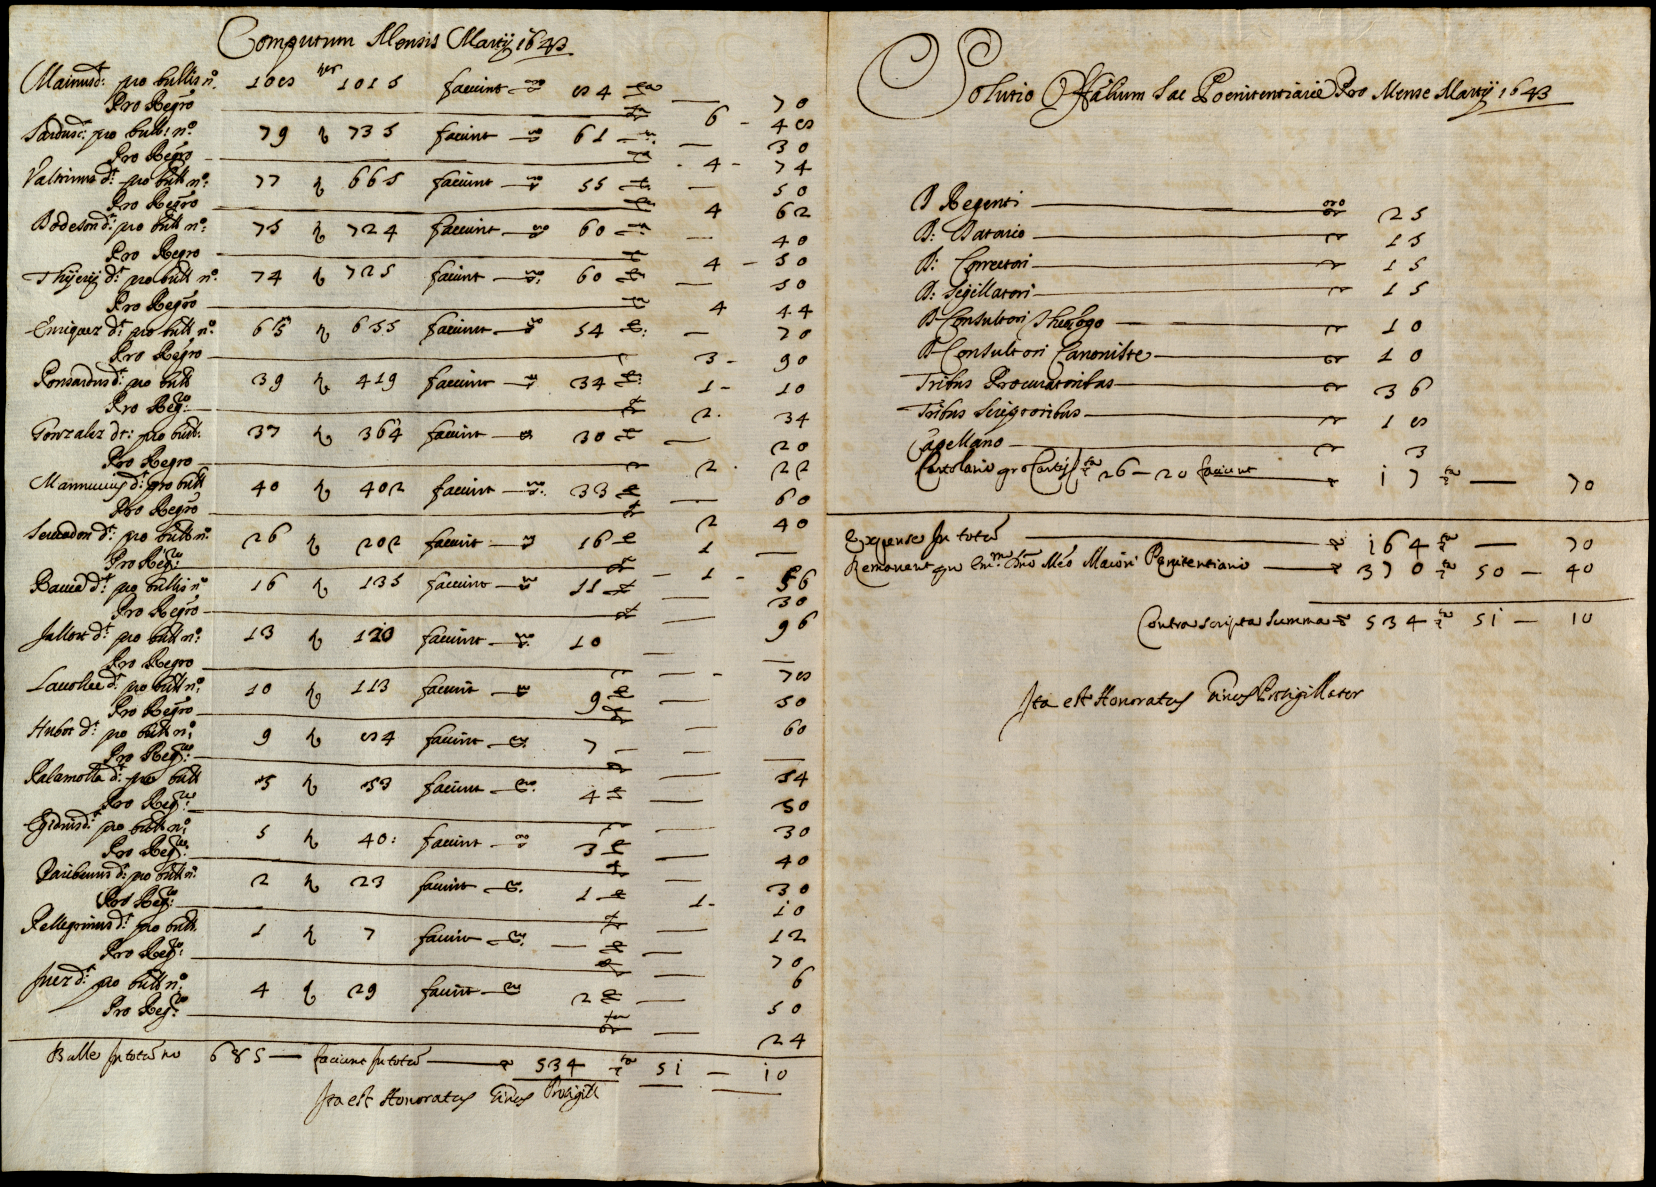 Computum Mensis Martij 1643
Mainus d: pro bullis nº. 108 per 1015 faciunt 84 — 70
Pro Regro 6 - 48
79 735 faciunt 61 — 30
Pro Regro 4 - 74
Valtrinus d: pro bull nº: 77 665 faciunt 55 — 50
Pro Regro 4 62
Bodeson d: pro bull nº: 75 724 faciunt 60 — 40
Pro Regro 4 - 50
Thijerij d: pro bull nº. 74 725 faciunt 60 — 50
Pro Regro 4 44
Enriquez d: pro bull nº. 65 655 faciunt 54 — 70
Pro Regro 3 - 90
Ponsardus d: pro bull 39 419 faciunt 34 1 - 10
Pro Reg:ro 2. 34
Gonzalez dt: pro bull. 37 364 faciunt 30 — 20
Pro Regro 2. 22
d: pro bull 40 402 faciunt 33 — 60
Pro Regro 2 40
d: pro bull nº. 26 202 faciunt 16 1 —
Pro Reg:ro — 1 - 56
d: pro bullis nº 16 135 faciunt 11 — 30
Pro Regro — 96
d: pro bull nº: 13 120 faciunt 10 — —
Pro Regro — - 78
d: pro bull nº; 10 113 faciunt 9 — 50
Pro Regro — 60
Hubot d: pro bull n; 9 84 faciunt 7 — —
Pro Reg:ro — 54
Palamolla d: pro bull 5 53 faciunt 4 — 50
Pro Reg:ro — 30
Egidius d: pro bull n; 5 40: faciunt 3 — 40
Pro Reg:ro — 30
d: pro bull nº. 2 23 faciunt 1 1 - 10
Pro Reg:ro — 12
Pellegrinus d: pro bull. 1 7 faciunt — — 70
Pro Reg:ro — 6
Juez d: pro bull nº; 4 29 faciunt 2 — 50
Pro Reg:ro — 24
Bulle In totu no 685 — faciunt In totu — 534 51 — 10
Ita est Honoratus Prosigill
Solutio Offalium Sac Poenitentiariae Pro Mense Martij 1643
D Regenti 25
D: Datario 15
D: Correctori 15
D: Sigillatori 15
D Consultori Theologo 10
D Consultori Canoniste 10
Tribus Procuratoribus 36
Tribus Scriptoribus 18
Capellano 3
Cartolario pro Cartis 26 - 20 faciunt 17 — 70
Expense In totu 164 — 70
Remanent Maiori Penitentiario 370 50 — 40
Contrascripta Summa 534 51 — 10
Ita est Honoratus Prosigillator